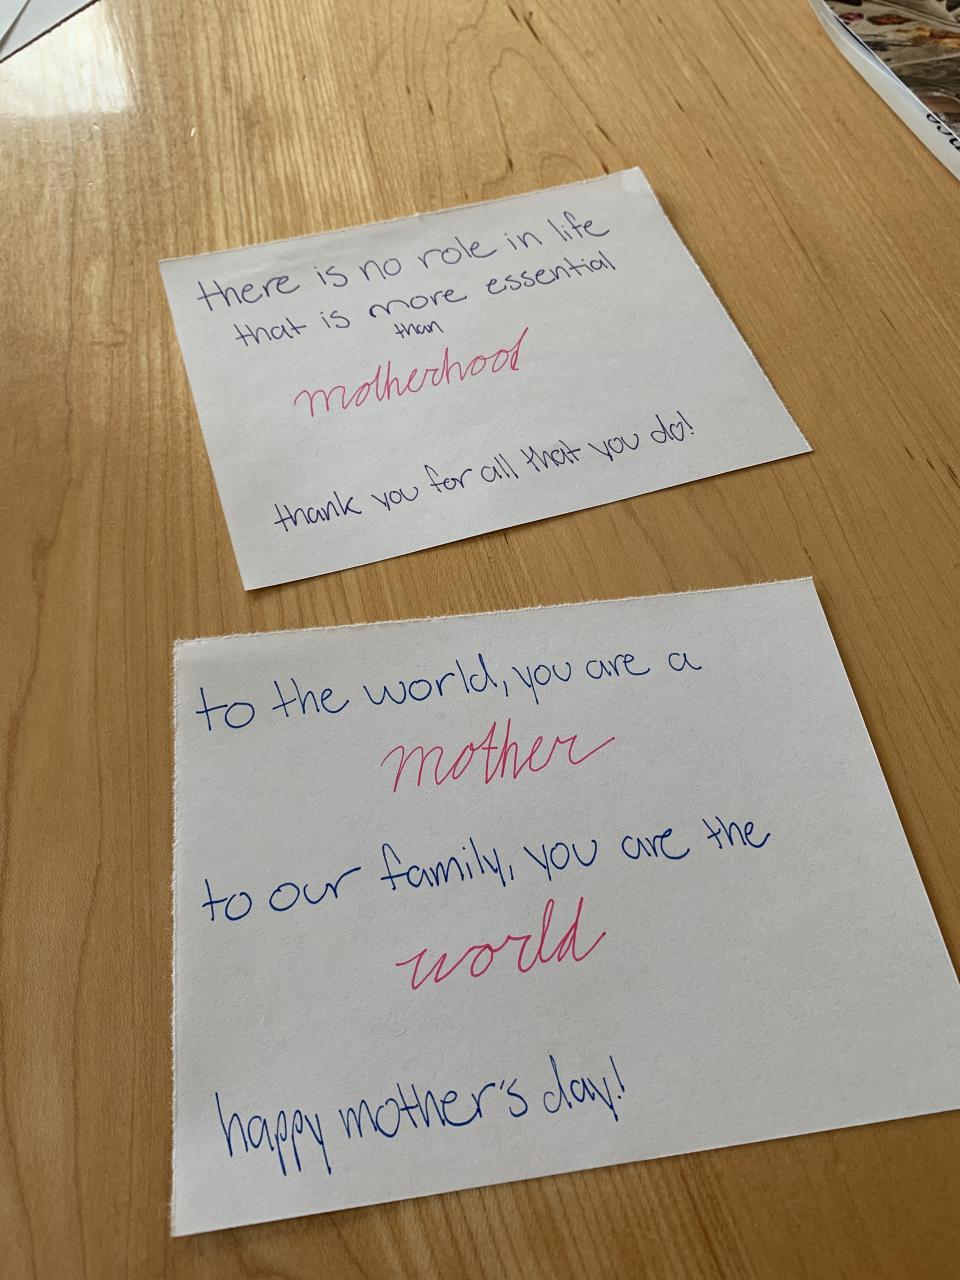 there is no role in life
that is more essential
than
motherhood
thank you for all that you do!
to the world, you are a
mother
to our family, you are the
world
happy mother's day!